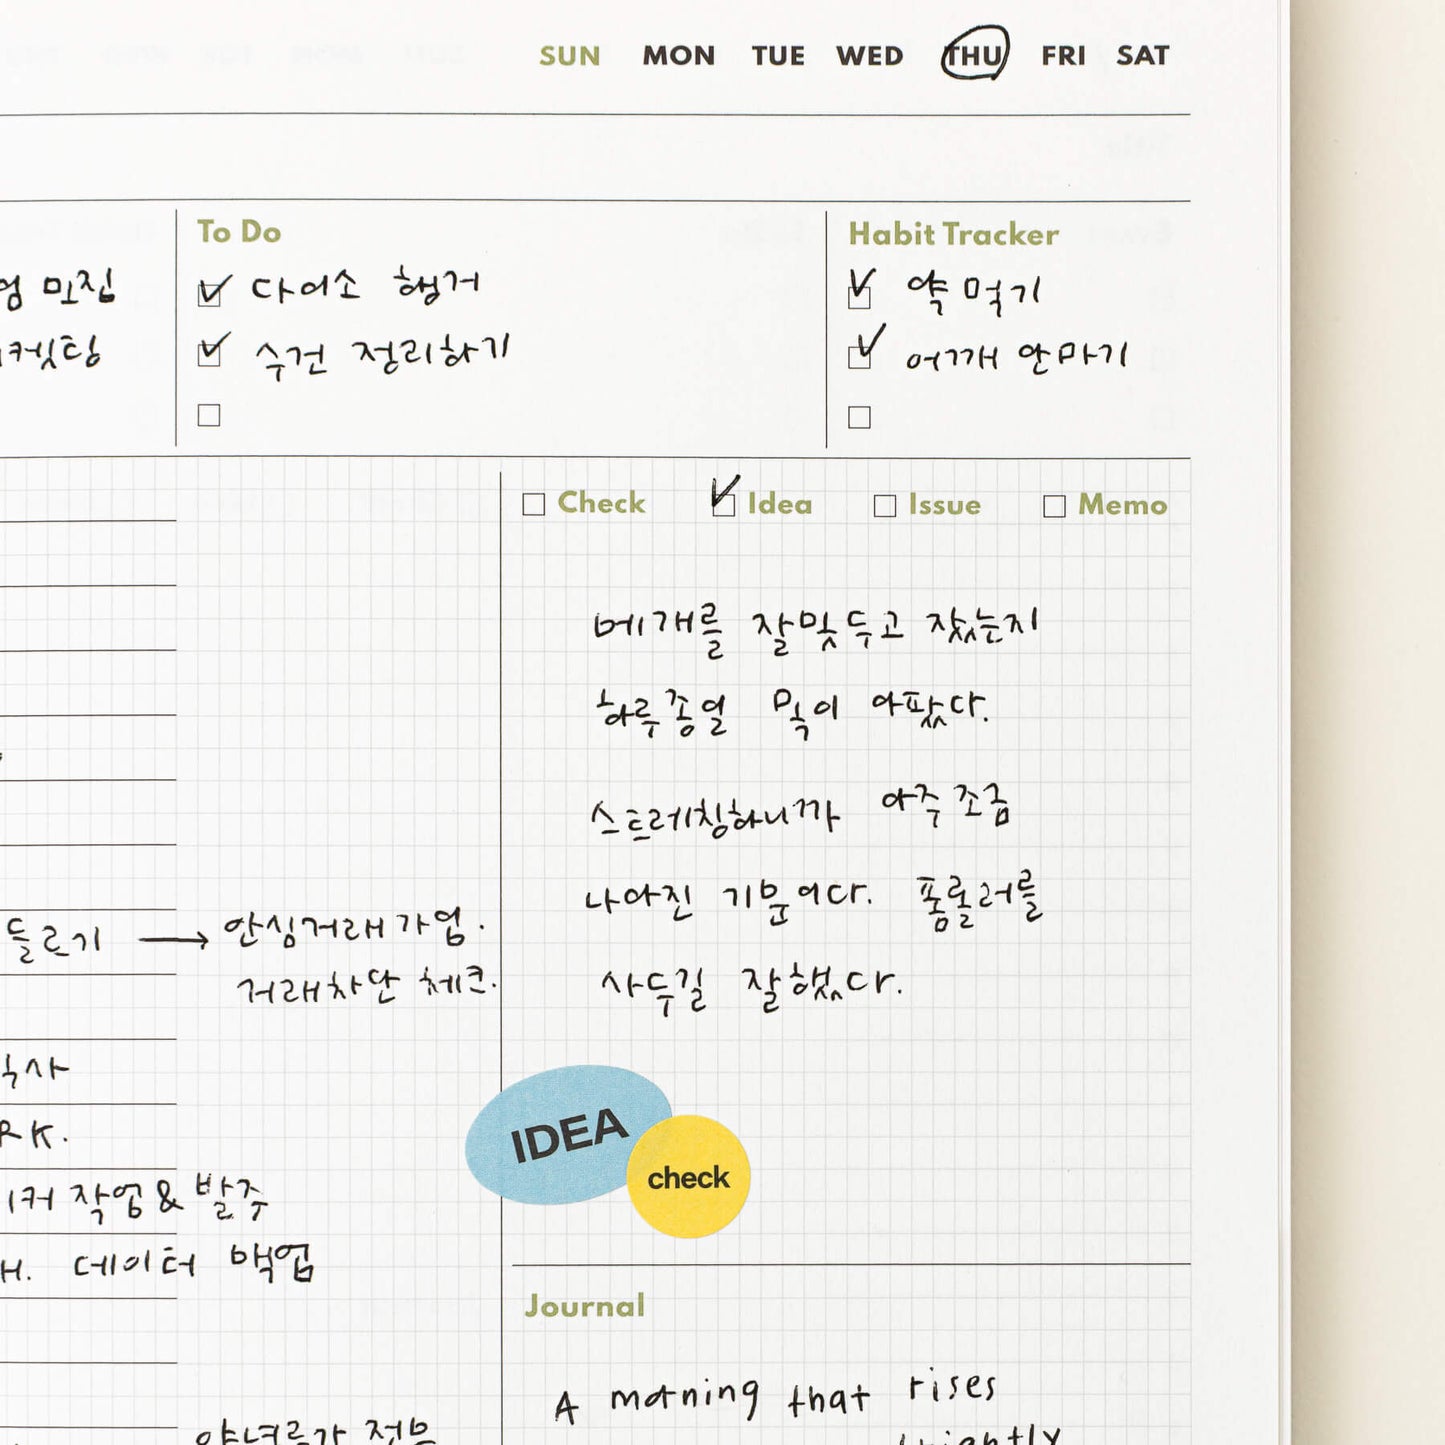 SUN MON TUE WED THU FRI SAT
To Do
다이소 행거
수건 정리하기
Habit Tracker
약 먹기
어깨 안마기
Check Idea Issue Memo
베개를 잘못 두고 잤는지
하루종일 목이 아팠다.
스트레칭하니까 아주 조금
나아진 기분이다. 폼롤러를
사두길 잘했다.
들르기 → 안심거래 가입.
거래차단 체크.
RK.
작업 & 발주
H. 데이터 백업
IDEA
check
Journal
A morning that rises